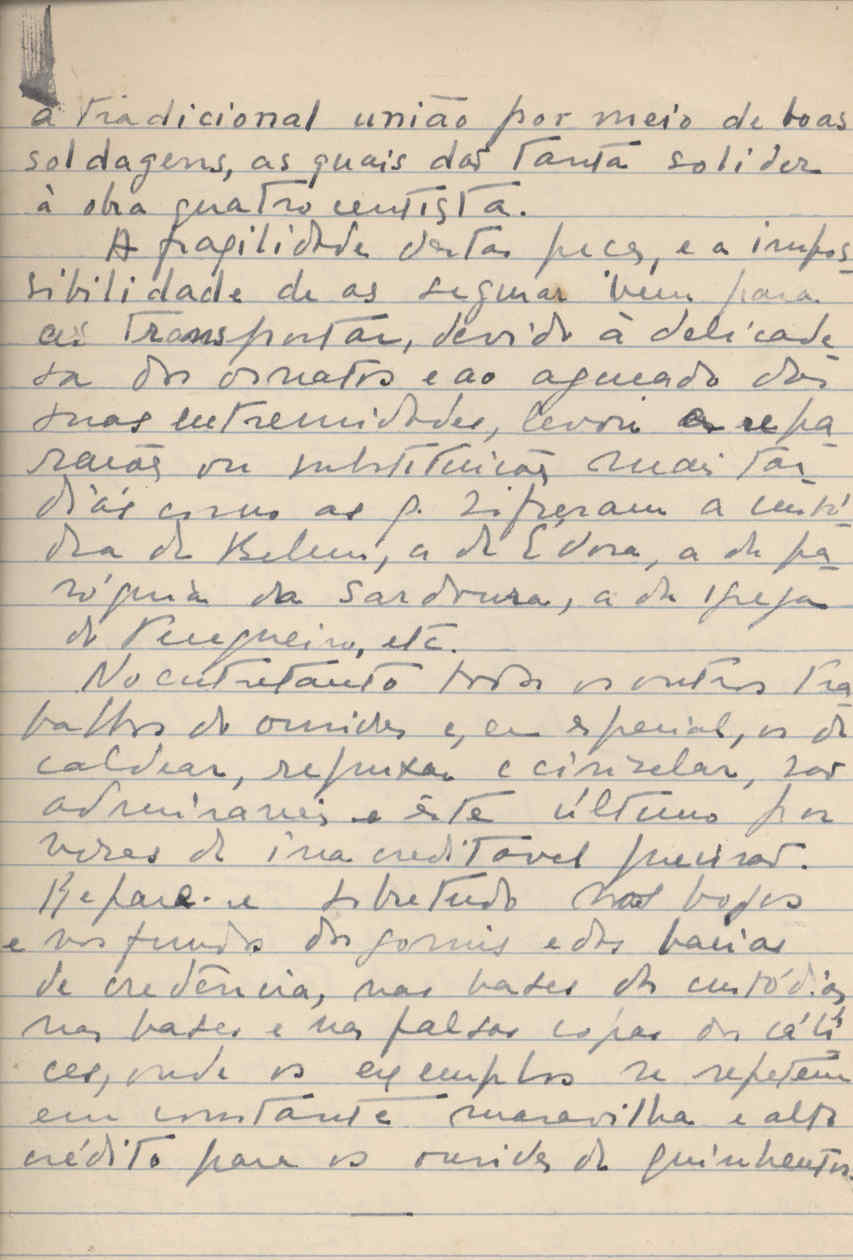 a tradicional união por meio de boas
soldagens, as quais dão tanta solidez
à obra quatrocentista.
A fragilidade destas peças, e a impos-
sibilidade de as segurar bem para
as transportar, devido à delicade-
sa dos ornatos e ao aguçado das
suas extremidades, levou a repa-
rações ou substituições mais tar-
dias como as q. sofreram a custó-
dia de Belem, a de Évora, a da pa-
róquia da Sardoura, a da igreja
do Pecegueiro, etc.
No entretanto todos os outros tra-
balhos de ourives e, em especial, os de
caldear, repuxar e cinzelar, são
admiraveis e êste último por
vezes de inacreditavel precisão.
Repare-se sobretudo nos bojos
e nos fundos dos gomis e das bacias
de credência, nas bases das custódias
nas bases e nas falsas copas dos cáli-
ces, onde os exemplos se repetem
em constante maravilha e alto
crédito para os ourives de quinhentos.